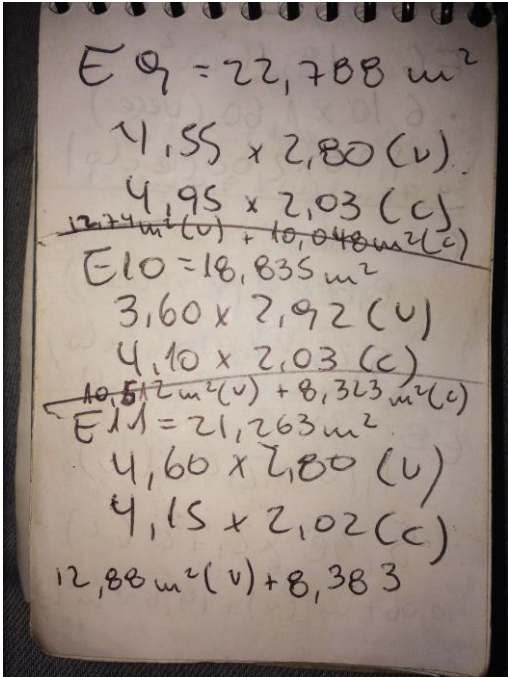 E9 = 22,788 m²
4,55 x 2,80 (v)
4,95 x 2,03 (c)
12,74 m² (v) + 10,048 m² (c)
E10 = 18,835 m²
3,60 x 2,92 (v)
4,10 x 2,03 (c)
10,512 m² (v) + 8,323 m² (c)
E11 = 21,263 m²
4,60 x 2,80 (v)
4,15 x 2,02 (c)
12,88 m² (v) + 8,383